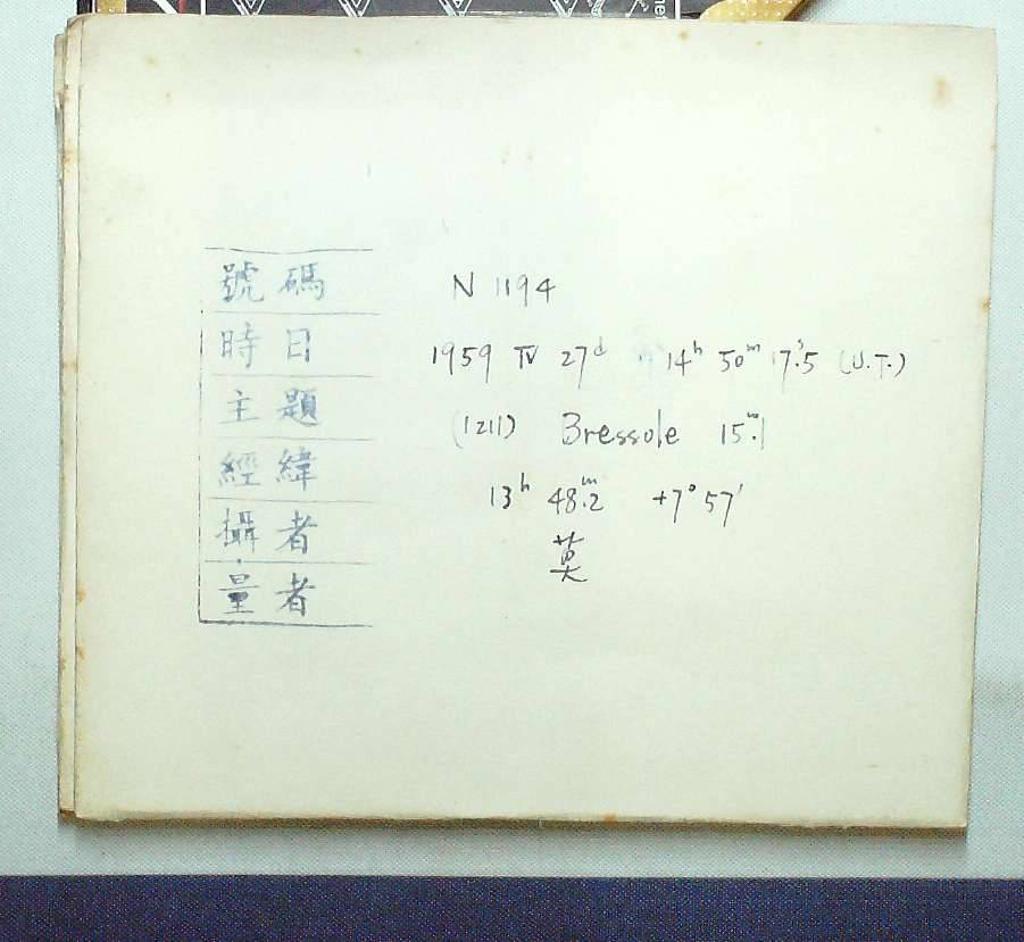 號碼 N 1194
時日 1959 IV 27ᵈ 14ʰ 50ᵐ 17ˢ.5 (U.T.)
主題 (1211) Bressole 15ᵐ.1
經緯 13ʰ 48ᵐ.2 +7° 57'
攝者 莫
量者